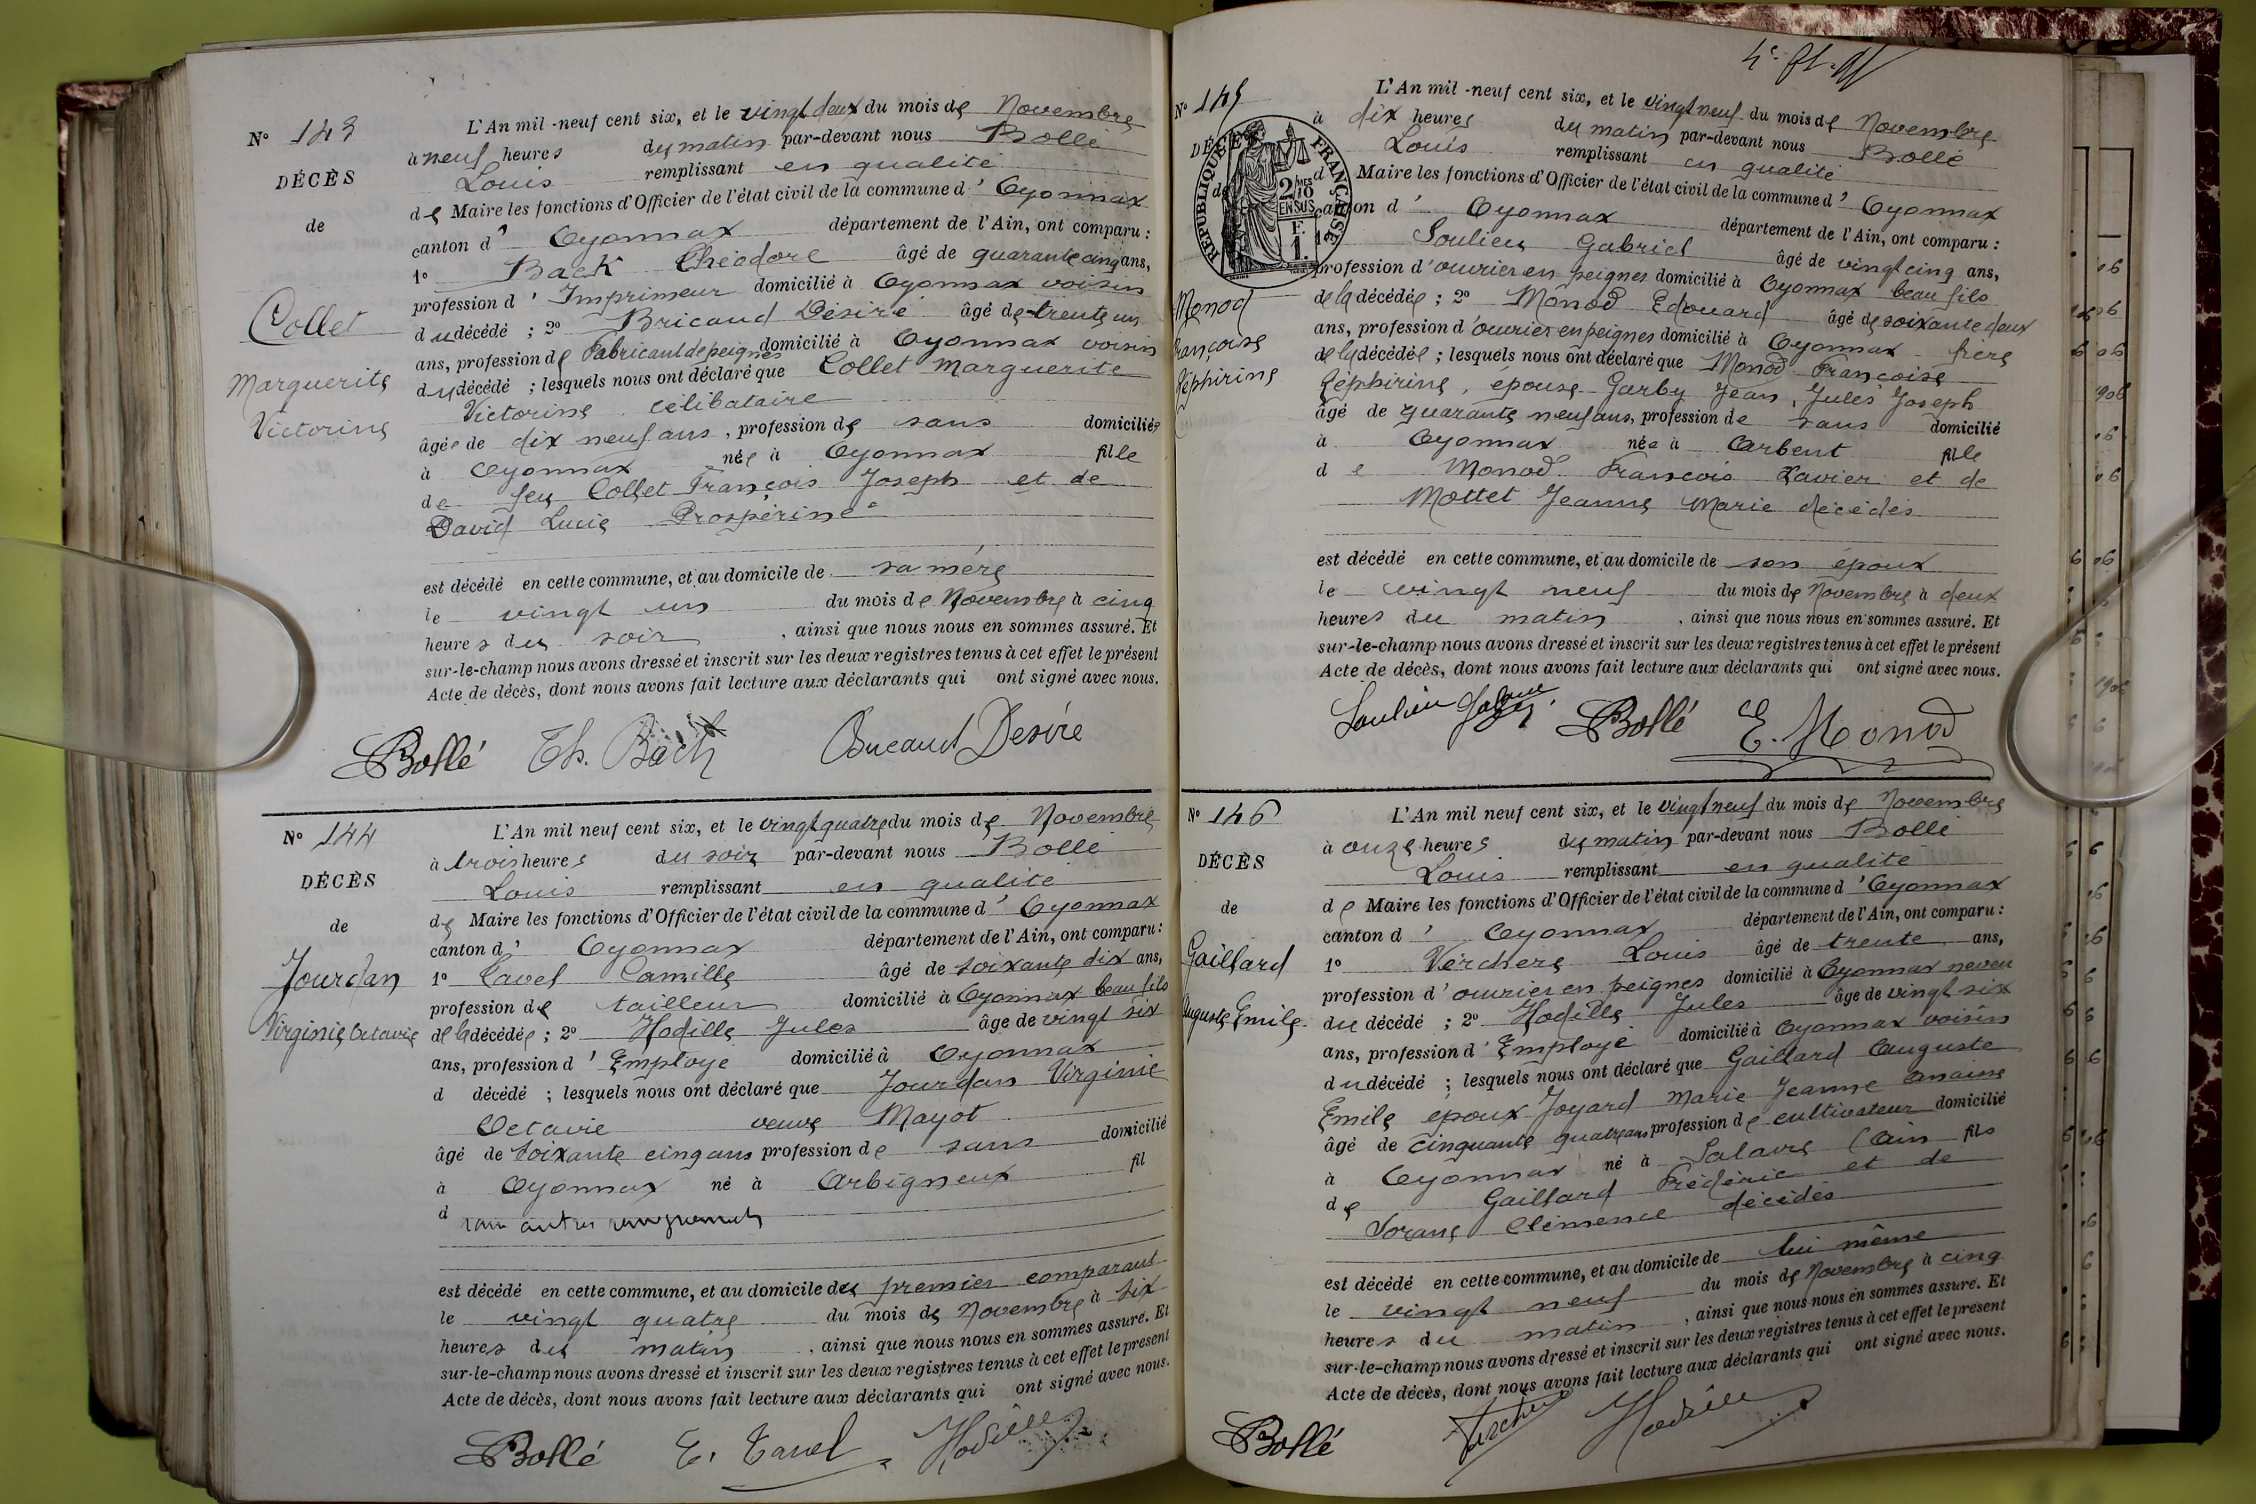 N° 143
DÉCÈS
de
Collet
Marguerite
Victorine
L'An mil-neuf cent six, et le vingt deux du mois de Novembre
à neuf heures du matin par-devant nous Bollé
Louis remplissant en qualité
de Maire les fonctions d'Officier de l'état civil de la commune d' Oyonnax
canton d' Oyonnax département de l'Ain, ont comparu :
1° Back Théodore âgé de quarante cinq ans,
profession d' Imprimeur domicilié à Oyonnax voisin
du décédé ; 2° Bricaud Désiré âgé de trente un
ans, profession de Fabricant de peignes domicilié à Oyonnax voisin
du décédé ; lesquels nous ont déclaré que Collet Marguerite
Victorine célibataire
âgée de dix neuf ans, profession de sans domiciliée
à Oyonnax née à Oyonnax fille
de feu Collet François Joseph et de
David Lucie Prospérine
est décédé en cette commune, et au domicile de sa mère
le vingt un du mois de Novembre à cinq
heures du soir, ainsi que nous nous en sommes assuré. Et
sur-le-champ nous avons dressé et inscrit sur les deux registres tenus à cet effet le présent
Acte de décès, dont nous avons fait lecture aux déclarants qui ont signé avec nous.
Bollé Th. Bach Bricaud Désiré
N° 144
DÉCÈS
de
Jourdan
Virginie Octavie
L'An mil neuf cent six, et le vingt quatre du mois de Novembre
à trois heures du soir par-devant nous Bollé
Louis remplissant en qualité
de Maire les fonctions d'Officier de l'état civil de la commune d' Oyonnax
canton d' Oyonnax département de l'Ain, ont comparu :
1° Tavel Camille âgé de soixante dix ans,
profession de tailleur domicilié à Oyonnax beau fils
de la décédée ; 2° Hodille Jules âgé de vingt six
ans, profession d' Employé domicilié à Oyonnax
d décédé ; lesquels nous ont déclaré que Jourdan Virginie
Octavie veuve Mayot
âgé de soixante cinq ans profession de sans domicilié
à Oyonnax né à Arbigneux fil
d sans autres renseignements
est décédé en cette commune, et au domicile du premier comparant
le vingt quatre du mois de Novembre à six
heures du matin, ainsi que nous nous en sommes assuré. Et
sur-le-champ nous avons dressé et inscrit sur les deux registres tenus à cet effet le présent
Acte de décès, dont nous avons fait lecture aux déclarants qui ont signé avec nous.
Bollé Tavel Hodille
N° 145
DÉCÈS
RÉPUBLIQUE FRANÇAISE
2/10 EN SUS
1 F.
Monod
Françoise
Zéphirine
L'An mil-neuf cent six, et le vingt neuf du mois de Novembre
à dix heures du matin par-devant nous Bollé
Louis remplissant en qualité
d Maire les fonctions d'Officier de l'état civil de la commune d' Oyonnax
canton d' Oyonnax département de l'Ain, ont comparu :
1° Soulieu Gabriel âgé de vingt cinq ans,
profession d' ouvrier en peignes domicilié à Oyonnax beau fils
de la décédée ; 2° Monod Edouard âgé de soixante deux
ans, profession d' ouvrier en peignes domicilié à Oyonnax frère
de la décédée ; lesquels nous ont déclaré que Monod Françoise
Zéphirine, épouse Garby Jean, Jules Joseph
âgé de quarante neuf ans, profession de sans domicilié
à Oyonnax née à Arbent fille
de Monod François Xavier et de
Mottet Jeanne Marie décédés
est décédé en cette commune, et au domicile de son époux
le vingt neuf du mois de Novembre à deux
heures du matin, ainsi que nous nous en sommes assuré. Et
sur-le-champ nous avons dressé et inscrit sur les deux registres tenus à cet effet le présent
Acte de décès, dont nous avons fait lecture aux déclarants qui ont signé avec nous.
Soulieu Bollé E. Monod
N° 146
DÉCÈS
de
Gaillard
Auguste Emile
L'An mil neuf cent six, et le vingt neuf du mois de Novembre
à onze heures du matin par-devant nous Bollé
Louis remplissant en qualité
de Maire les fonctions d'Officier de l'état civil de la commune d' Oyonnax
canton d' Oyonnax département de l'Ain, ont comparu :
1° Verchere Louis âgé de trente ans,
profession d' ouvrier en peignes domicilié à Oyonnax neveu
du décédé ; 2° Hodille Jules âgé de vingt six
ans, profession d' Employé domicilié à Oyonnax voisin
du décédé ; lesquels nous ont déclaré que Gaillard Auguste
Emile époux Joyard Marie Jeanne
âgé de cinquante quatre ans profession de cultivateur domicilié
à Oyonnax né à Salavre (Ain fils
de Gaillard Frédéric et de
Clémence décédés
est décédé en cette commune, et au domicile de lui même
le vingt neuf du mois de Novembre à cinq
heures du matin, ainsi que nous nous en sommes assuré. Et
sur-le-champ nous avons dressé et inscrit sur les deux registres tenus à cet effet le présent
Acte de décès, dont nous avons fait lecture aux déclarants qui ont signé avec nous.
Bollé Hodille